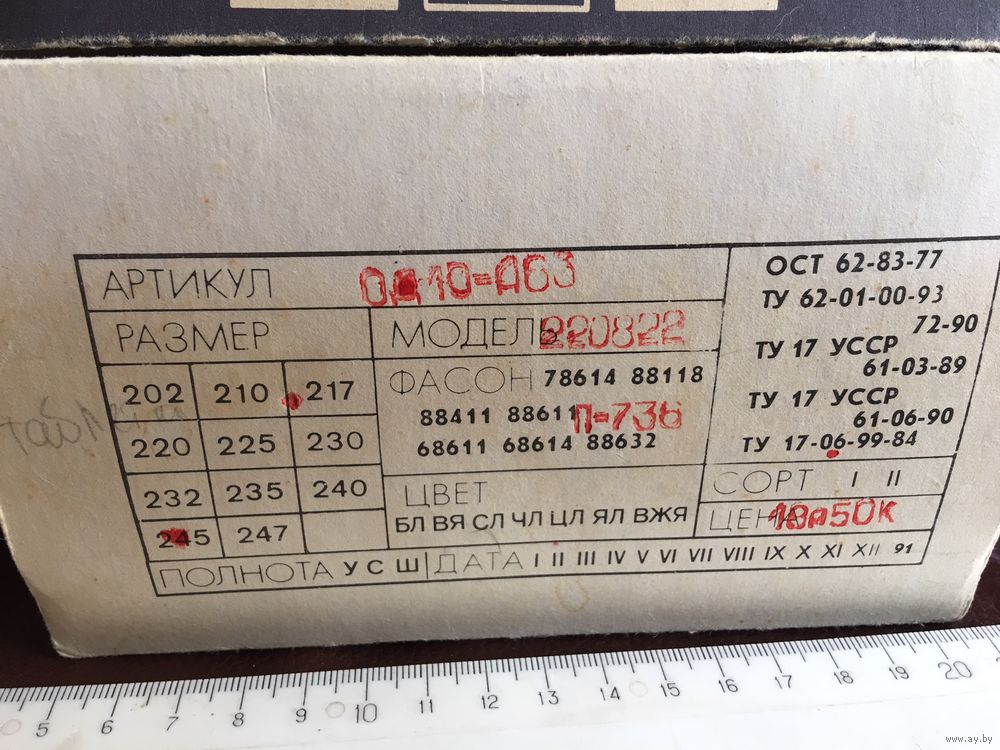 АРТИКУЛ ОД10=Д63
РАЗМЕР
202 210 217
220 225 230
232 235 240
245 247
МОДЕЛЬ 220822
ФАСОН 78614 88118
88411 88611 П=736
68611 68614 88632
ЦВЕТ
БЛ ВЯ СЛ ЧЛ ЦЛ ЯЛ ВЖЯ
ОСТ 62-83-77
ТУ 62-01-00-93
72-90
ТУ 17 УССР
61-03-89
ТУ 17 УССР
61-06-90
ТУ 17-06-99-84
СОРТ I II
ЦЕНА 18р50к
ПОЛНОТА У С Ш ДАТА I II III IV V VI VII VIII IX X XI XII 91
5 6 7 8 9 10 11 12 13 14 15 16 17 18 19 20
www.ay.by